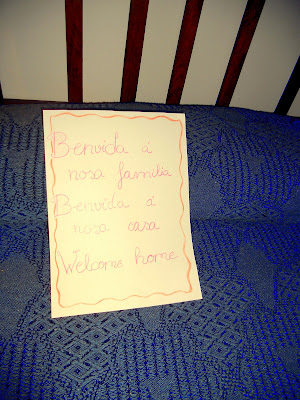 Benvida á
nosa familia
Benvida á
nosa casa
Welcome home